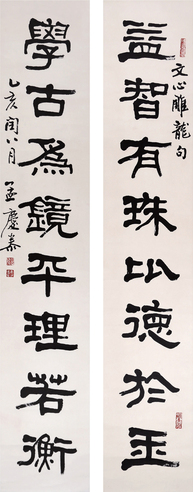 益智有珠比德於玉
文心雕龍句
學古為鏡平理若衡
乙亥閏八月
孟慶泰